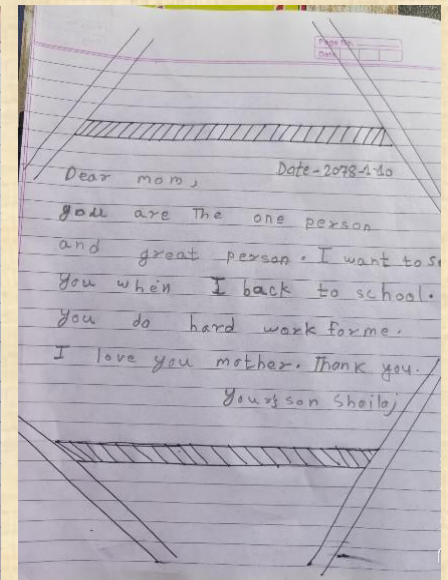 Page No.
Date
Date - 2078-1-10
Dear mom,
you are The one person
and great person. I want to s
you when I back to school.
you do hard work for me.
I love you mother. Thank you.
Your's son Shailaj